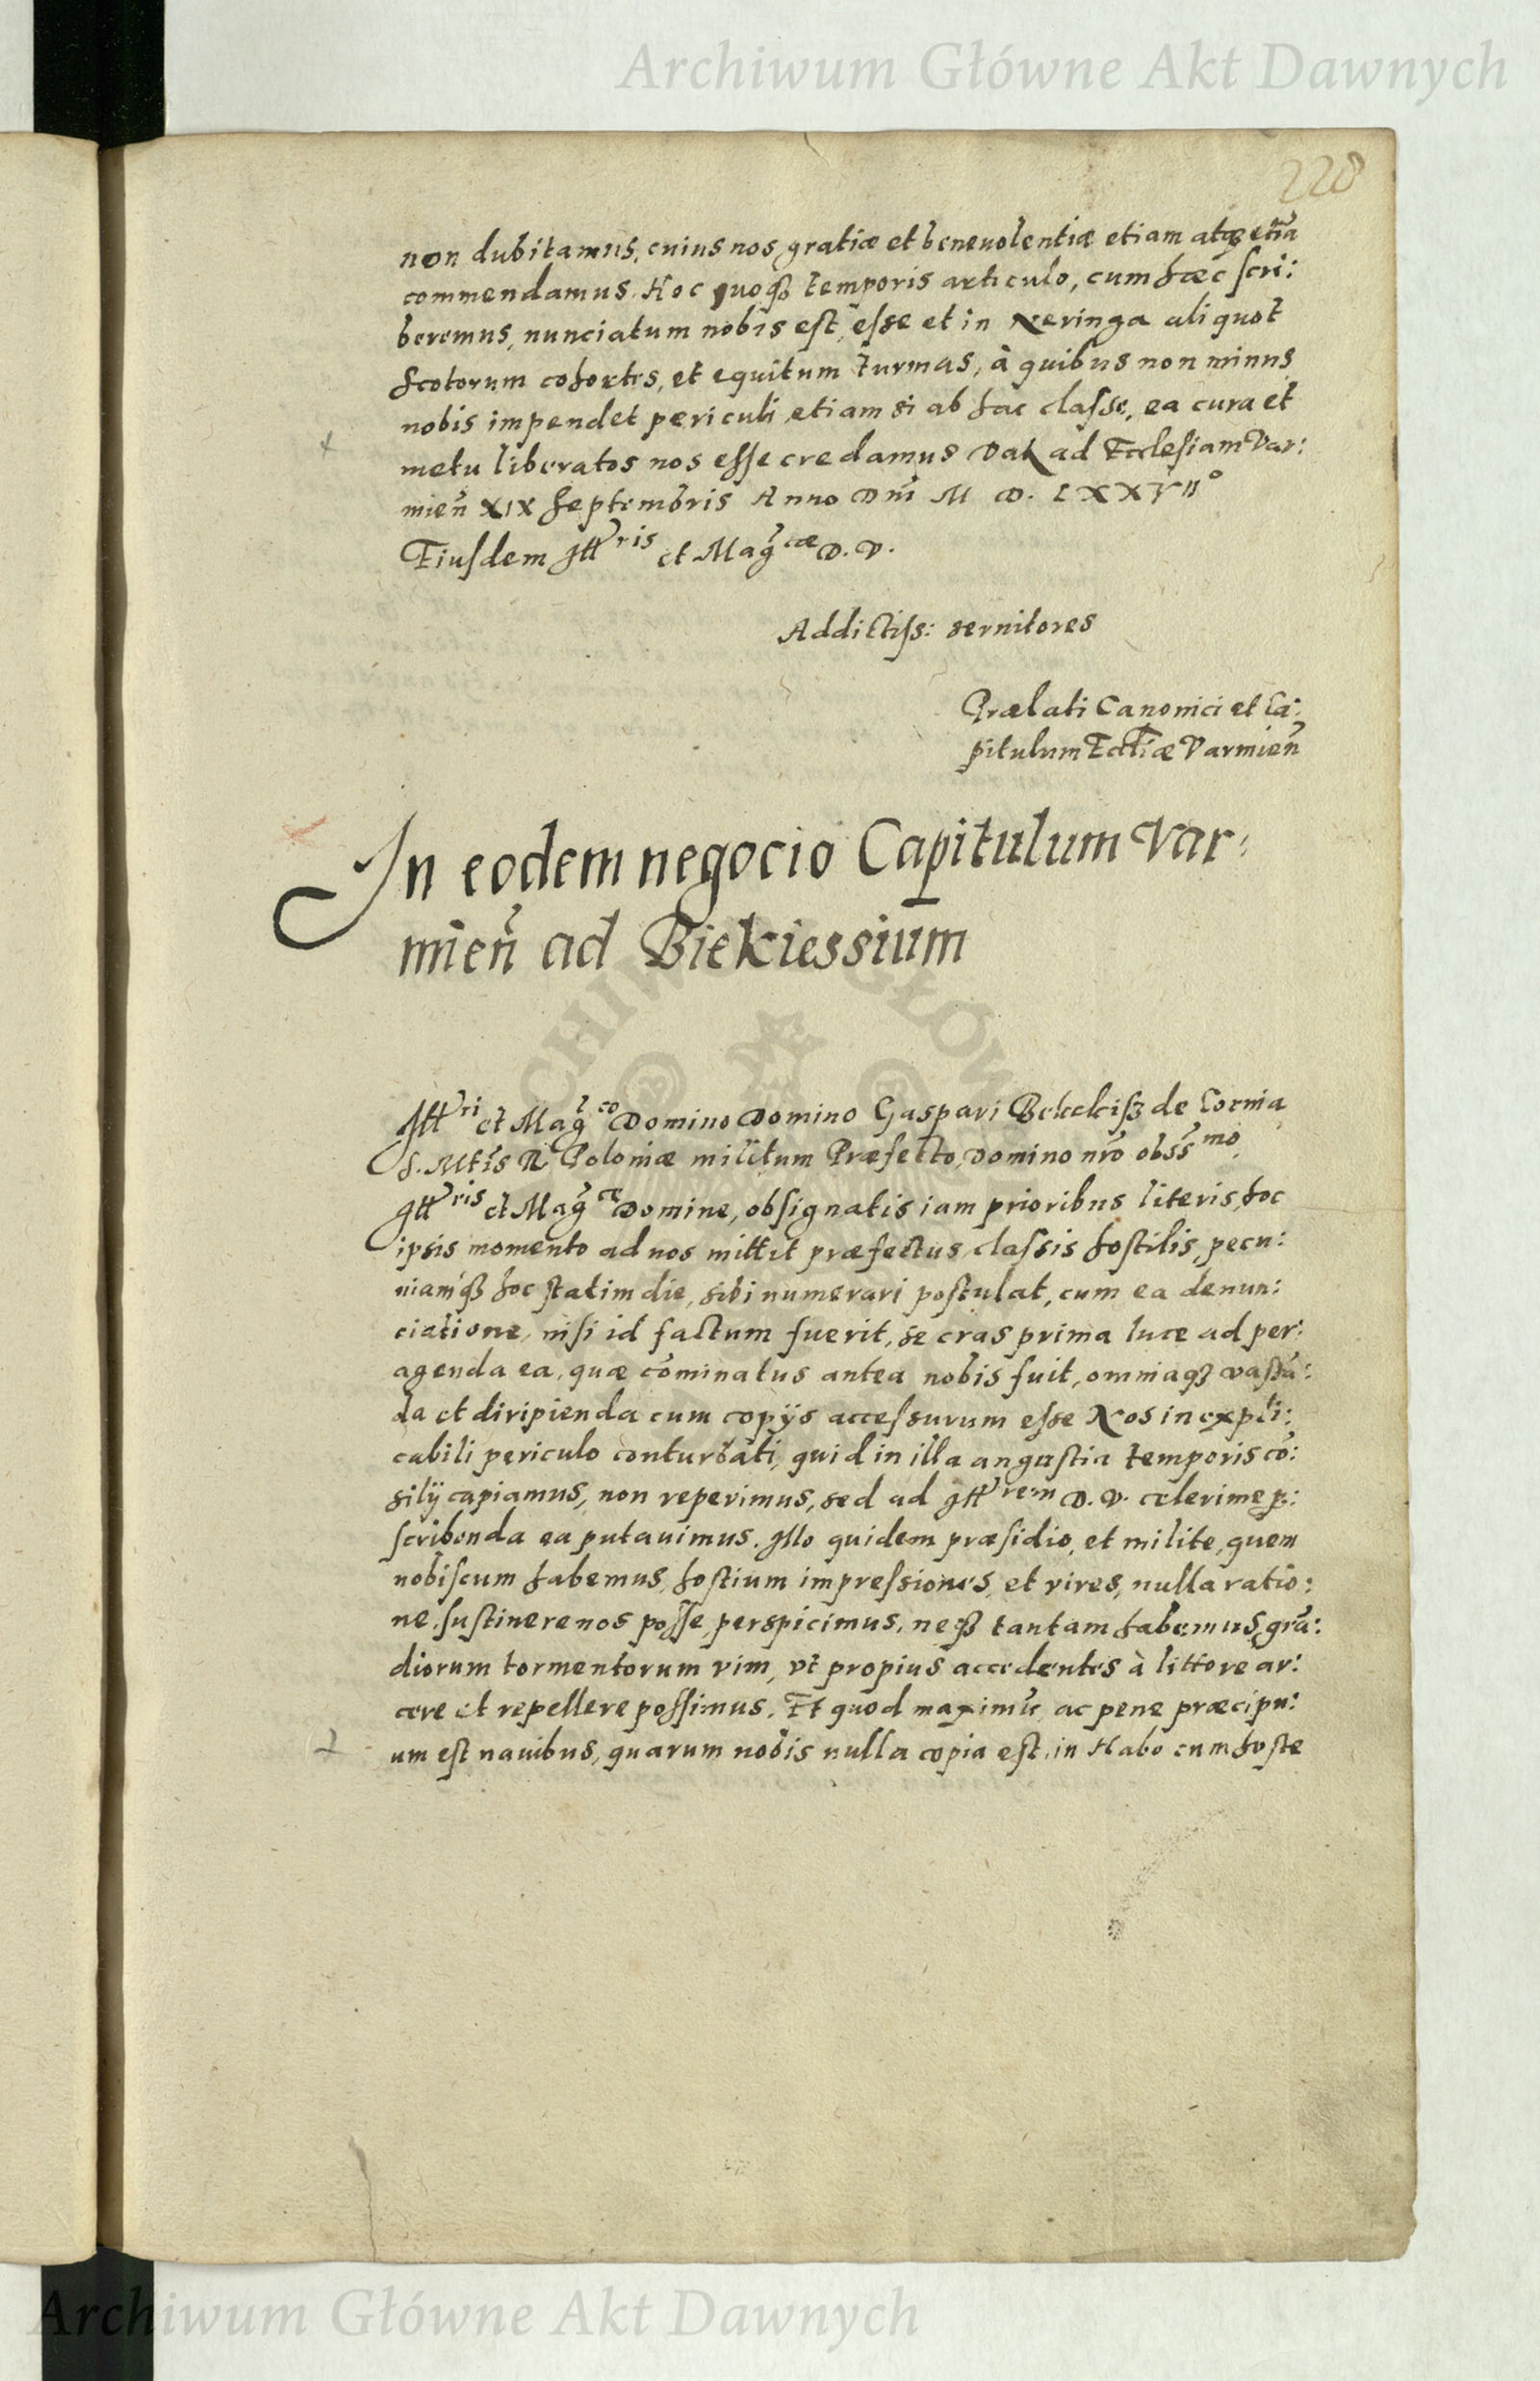 Archiwum Główne Akt Dawnych
228
non dubitamus, cuius nos gratiæ et beneuolentiæ etiam atqꝫ etiā
commendamus. Hoc quoqꝫ temporis articulo, cum hæc scri:
beremus, nunciatum nobis est, esse et in Neringa aliquot
Scotorum cohortes, et equitum turmas, à quibus non minus
nobis impendet periculi etiam si ab hac classe, ea cura et
metu liberatos nos esse credamus Dat ad Ecclesiam Var:
mień XIX Septembris Anno Dni M D. LXXVIIº
Eiusdem Illris et Magcæ D. V.
Addictiss: seruitores
Prælati Canonici et Ca:
pitulum Eccliæ Varmień
In eodem negocio Capitulum Var:
mień ad Biekiessium
Illri et Magco Domino Domino Gaspari Bekekiss de Cornia
S. Mtis R. Poloniæ militum Præfecto, Domino nro obssmo.
Illris et Magce Domine, obsignatis iam prioribus literis, hoc
ipsis momento ad nos mittit præfectus classis hostilis, pecu:
niamqꝫ hoc statim die, sibi numerari postulat, cum ea denun:
ciatione, nisi id factum fuerit, se cras prima luce ad per:
agenda ea, quæ cōminatus antea nobis fuit, omniaqꝫ vastā:
da et diripienda cum copijs accessurum esse Nos inexpli:
cabili periculo conturbati, quid in illa angustia temporis cō:
silij capiamus, non reperimus, sed ad Illrem D. V. celerime p:
scribenda ea putauimus. Illo quidem præsidio, et milite, quem
nobiscum habemus, hostium impressiones, et vires, nulla ratio:
ne, sustinere nos posse, perspicimus, neqꝫ tantam habemus grā:
diorum tormentorum vim, vt propius accedentes à littore ar:
cere et repellere possimus. Et quod maximū ac pene præcipu:
um est nauibus, quarum nobis nulla copia est, in Habo cum hoste
Archiwum Główne Akt Dawnych